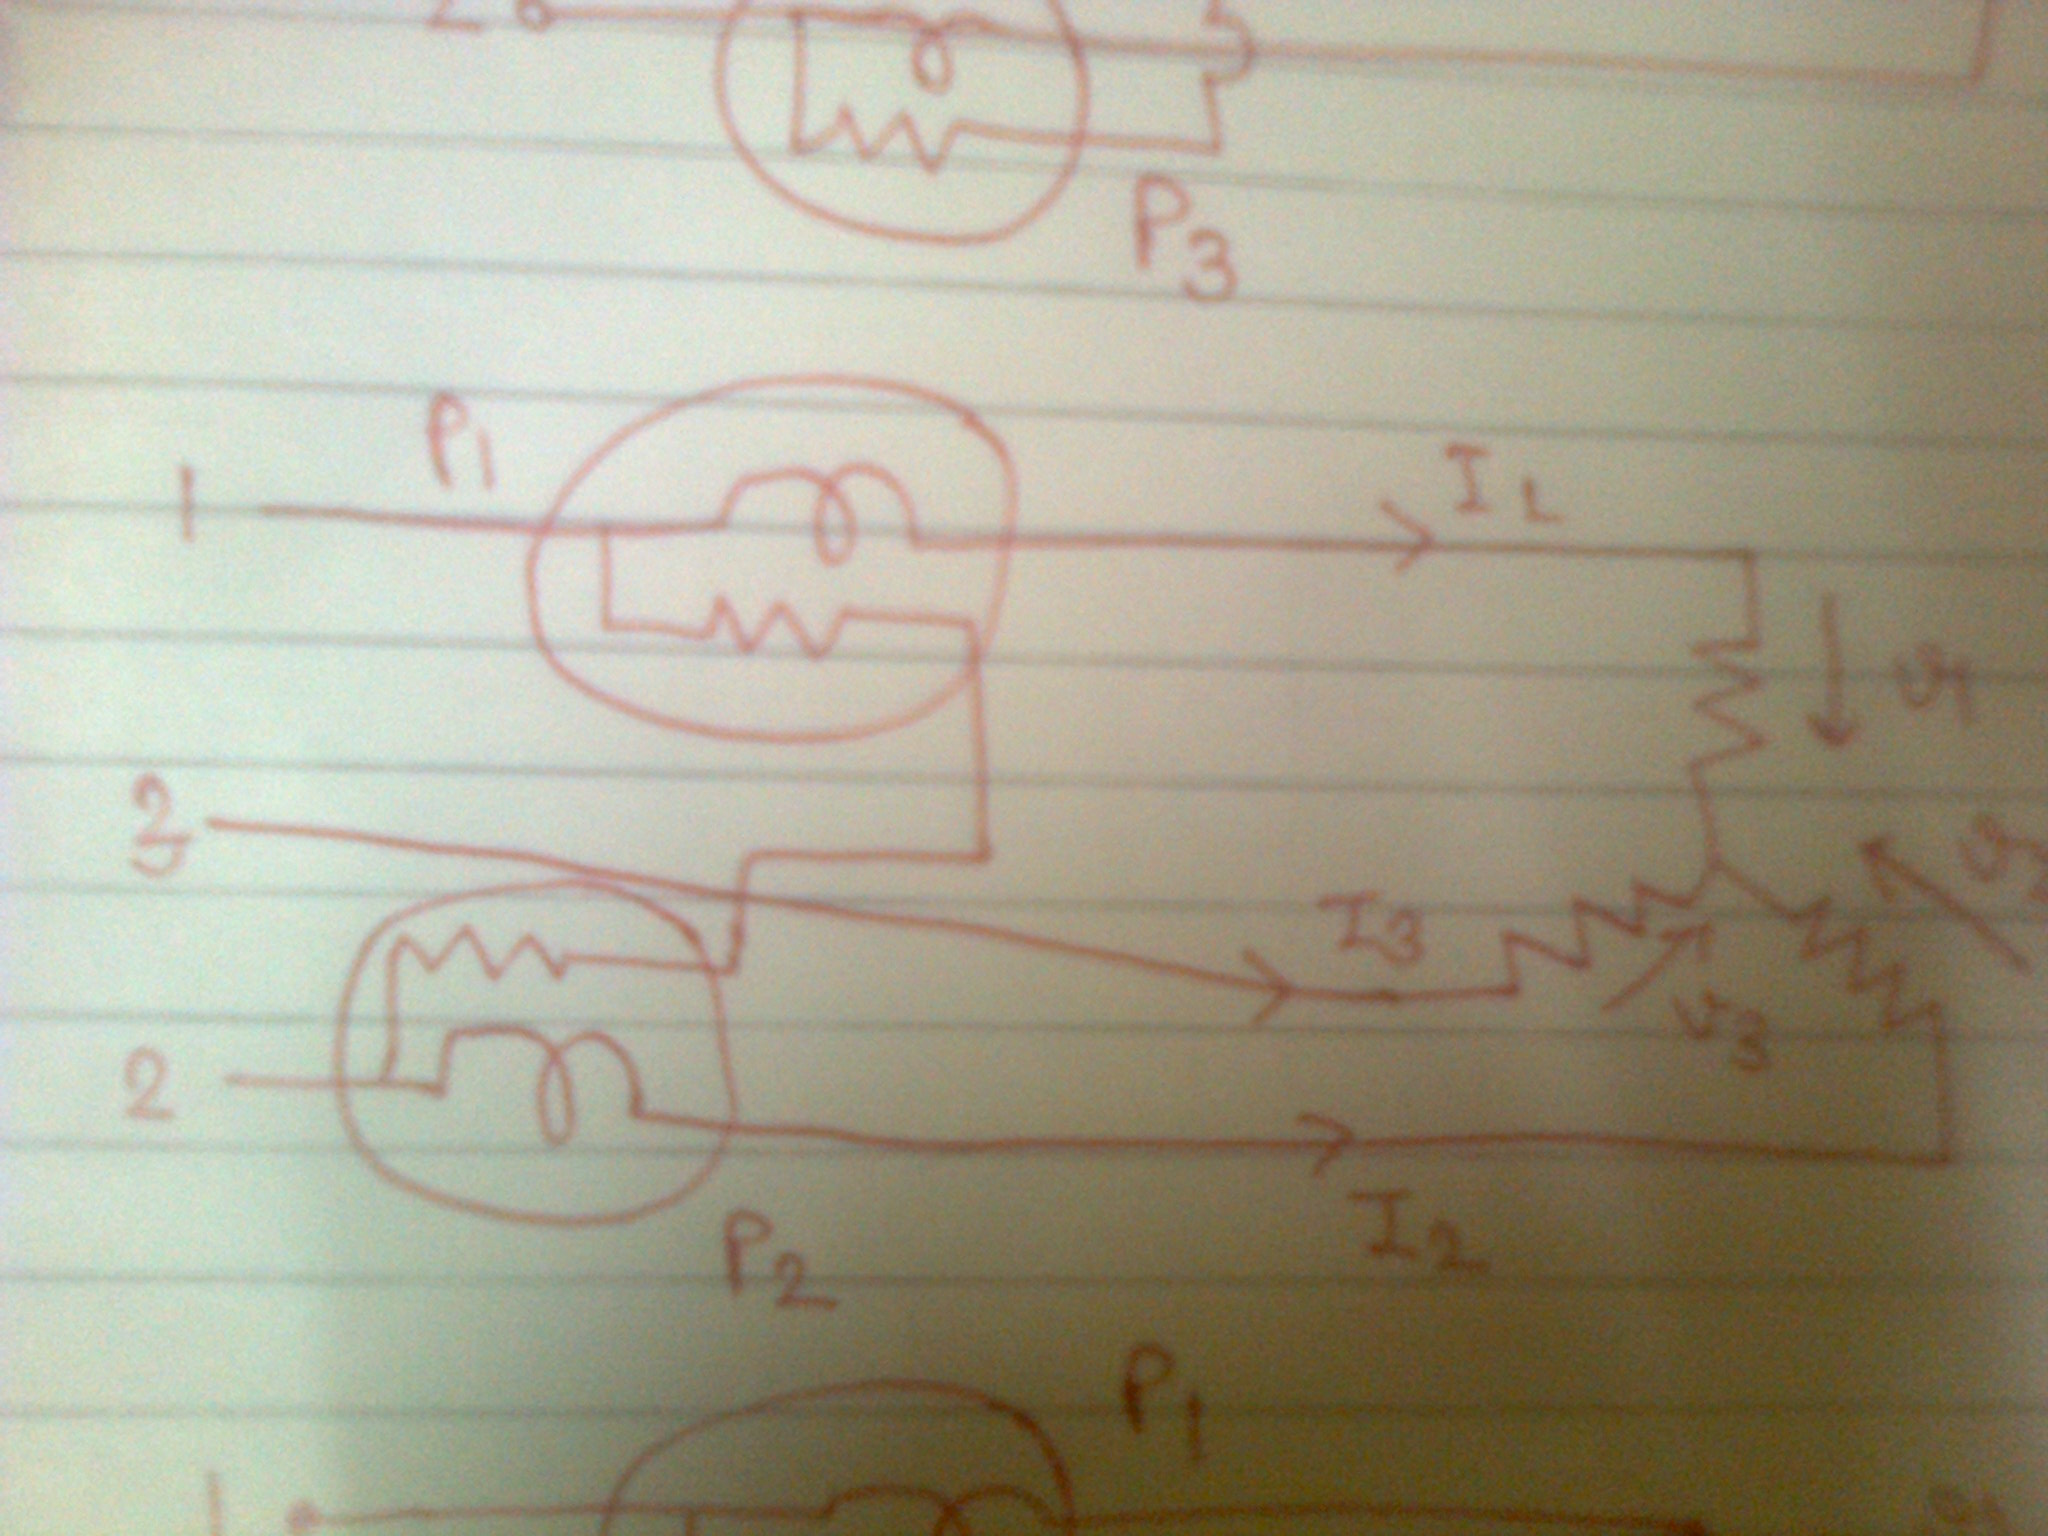 2
P3
P1
1
I1
v1
3
v2
I3
v3
2
I2
P2
P1
1